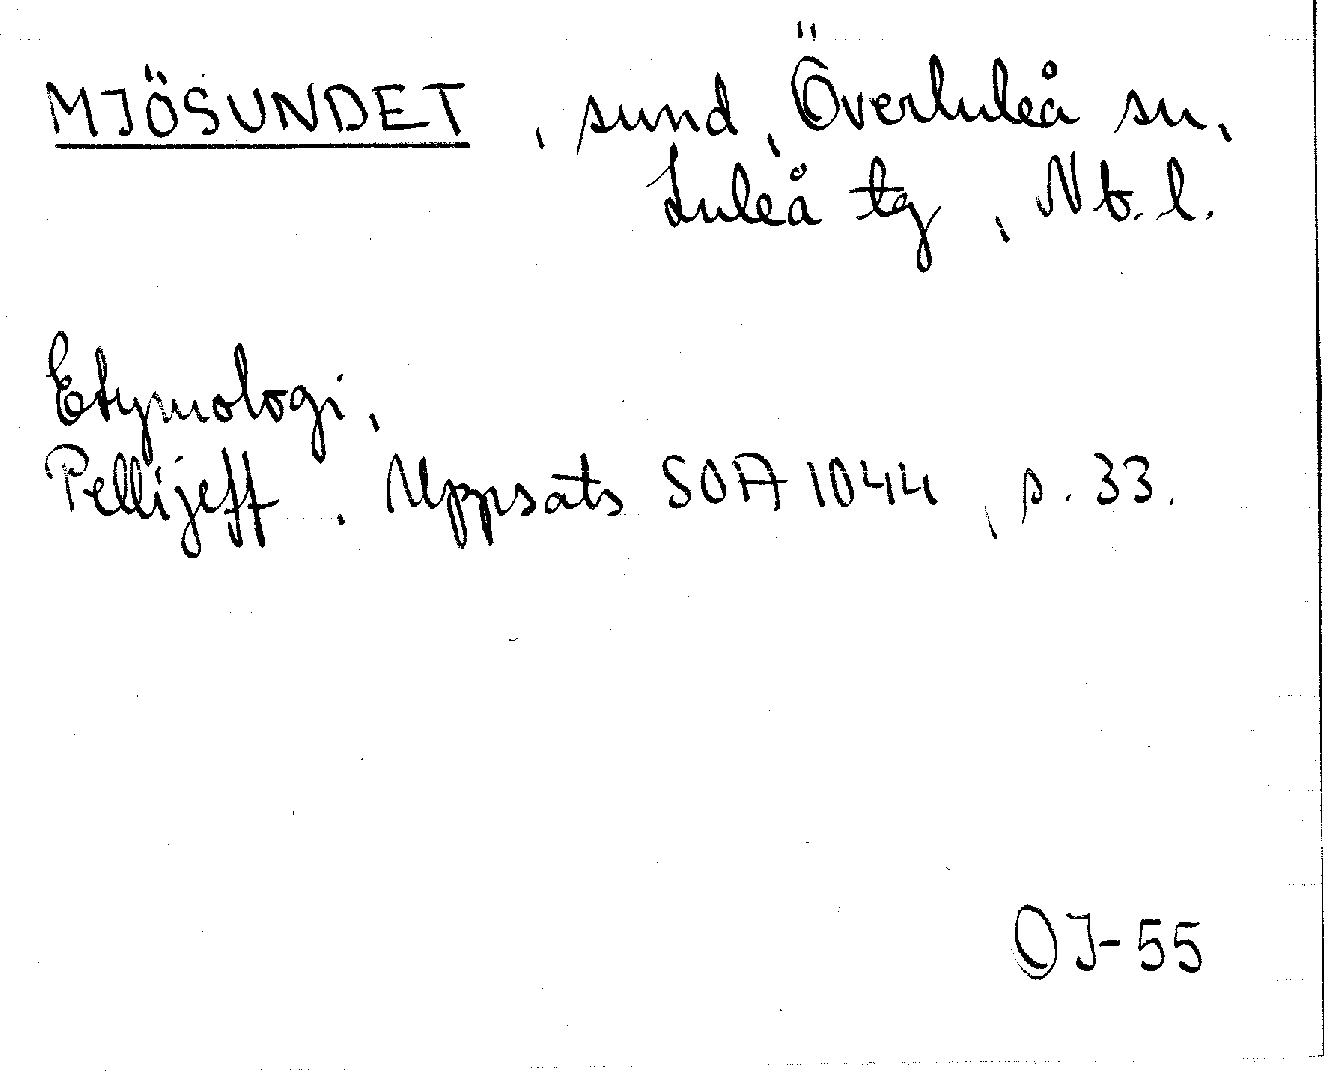 MJÖSUNDET, sund, Överluleå sn,
Luleå tg, Nb. l.
Etymologi,
Pellijeff. Uppsats SOA 1044, s. 33.
OJ-55